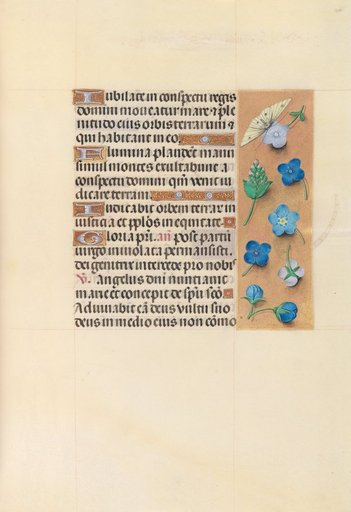 Iubilate in conspectu regis
domini moveatur mare ⁊ ple
nitudo eius orbis terrarum ⁊
qui habitant in eo
Flumina plaudēt manu
simul montes exultabunt a
conspectu domini qm̄ venit iu
dicare terram
Iudicabit orbem terrar in
iusticia et pplōs in equitate
Gloria pr̄i. an̄ post partū
virgo inviolata permansisti.
dei genitrix intercede pro nobis
v̄. Angelus dn̄i nunciavit
marie et concepit de spū scō
Adiuvabit eā deus vultu suo
deus in medio eius non cōmo